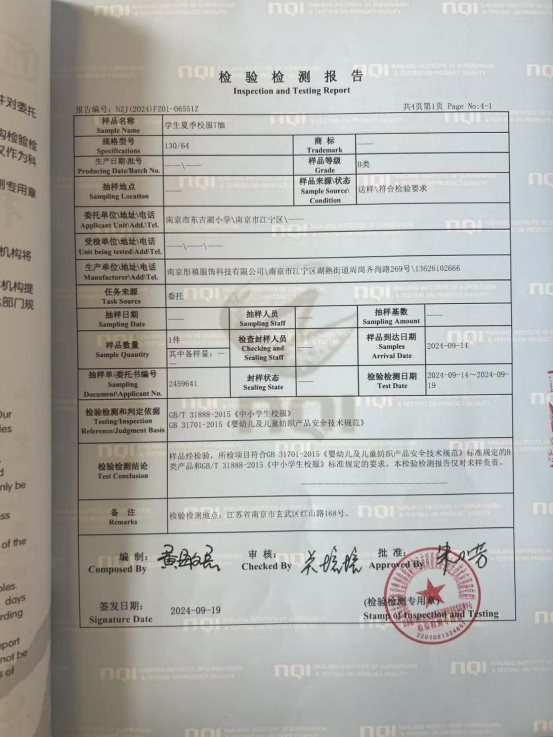 检 验 检 测 报 告
Inspection and Testing Report
报告编号: NZJ(2024)FZ01-06551Z 共4页第1页 Page No:4-1
样品名称 Sample Name 学生夏季校服T恤
规格型号 Specifications 130/64 商 标 Trademark ——
生产日期\批号 Producing Date/Batch No. ——\—— 样品等级 Grade B类
抽样地点 Sampling Location —— 样品来源\状态 Sample Source\ Condition 送样\符合检验要求
委托单位\地址\电话 Applicant Unit\Add.\Tel. 南京市东古湖小学\南京市江宁区\——
受检单位\地址\电话 Unit being tested\Add\Tel. ——\——\——
生产单位\地址\电话 Manufacturer\Add\Tel. 南京彤禧服饰科技有限公司\南京市江宁区湖熟街道周岗齐尚路269号\13626102666
任务来源 Task Source 委托
抽样日期 Sampling Date —— 抽样人员 Sampling Staff —— 抽样基数 Sampling Amount ——
样品数量 Sample Quantity 1件 其中备样量: —— 检查封样人员 Checking and Sealing Staff —— 样品到达日期 Samples Arrival Date 2024-09-14
抽样单\委托书编号 Sampling Document\Applicant No. 2459641 封样状态 Sealing State —— 检验检测日期 Test Date 2024-09-14~2024-09-19
检验检测和判定依据 Testing/Inspection Reference/Judgment Basis
GB/T 31888-2015《中小学生校服》
GB 31701-2015《婴幼儿及儿童纺织产品安全技术规范》
检验检测结论 Test Conclusion
样品经检验，所检项目符合GB 31701-2015《婴幼儿及儿童纺织产品安全技术规范》标准规定的B
类产品和GB/T 31888-2015《中小学生校服》标准规定的要求。本检验检测报告仅对来样负责。
备 注 Remarks 检验检测地点: 江苏省南京市玄武区红山路168号。
编 制: Composed By 审 核: Checked By 批 准: Approved By
签发日期: Signature Date 2024-09-19 (检验检测专用章)
Stamp of Inspection and Testing
nqi NANJING INSTITUTE OF SUPERVISION
& TESTING ON PRODUCT QUALITY